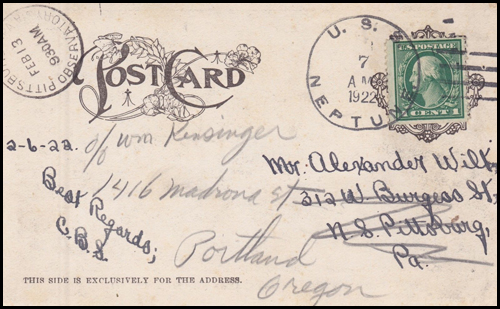 PITTSBURG
OBSERVATORY
FEB 13
930AM
U. S.
7
A M
1922
NEPTUNE
U.S. POSTAGE
1 CENT 1
A POST CARD
c/o Wm Kensinger
2-6-22.
Mr. Alexander Wilk
1416 madrona st
312 W. Burgess St,
Best Regards;
C.B.S.
N.S. Pittsburg,
Pa.
Portland
Oregon
THIS SIDE IS EXCLUSIVELY FOR THE ADDRESS.